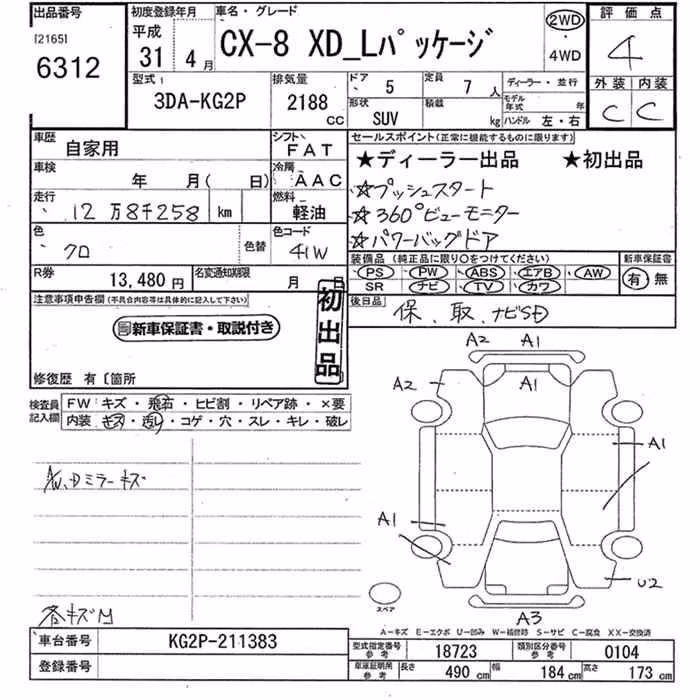 出品番号 初度登録年月 車名・グレード 評価点
[2165] 6312 平成 31 4月 CX-8 XD_Lパッケージ 2WD 4WD 4
型式 排気量 ドア 5 定員 7人 ディーラー・並行 外装 内装
3DA-KG2P 2188 CC 形状 SUV 積載 kg モデル年式 年 ハンドル 左・右 C C
車歴 自家用 シフト FAT セールスポイント(正常に機能するものに限ります)
車検 年 月( 日) 冷房 AAC ★ディーラー出品 ★初出品
走行 12万8千258 km 燃料 軽油 ☆プッシュスタート
☆360°ビューモニター
色 クロ 色替 色コード 41W ☆パワーバックドア
装備品(純正品に限り○をつけてください) 新車保証書
R券 13,480円 名変通知期限 月 日 PS PW ABS エアB AW 有 無
SR ナビ TV カワ
注意事項申告欄(不具合内容等は具体的に記入して下さい) 初出品 後日品 保、取、ナビSD
新車保証書・取説付き
修復歴 有〔箇所
検査員記入欄 FW キズ・飛石・ヒビ割・リペア跡・×要
内装 キズ・汚レ・コゲ・穴・スレ・キレ・破レ
A2 A1
A2 A1
A1
AW、Dミラーキズ
A1
U2
スペア
各キズM A3
A-キズ E-エクボ U-凹み W-補修跡 S-サビ C-腐食 XX-交換済
車台番号 KG2P-211383 型式指定番号 参考 18723 類別区分番号 参考 0104
登録番号 車庫証明用 参考 長さ 490 cm 幅 184 cm 高さ 173 cm